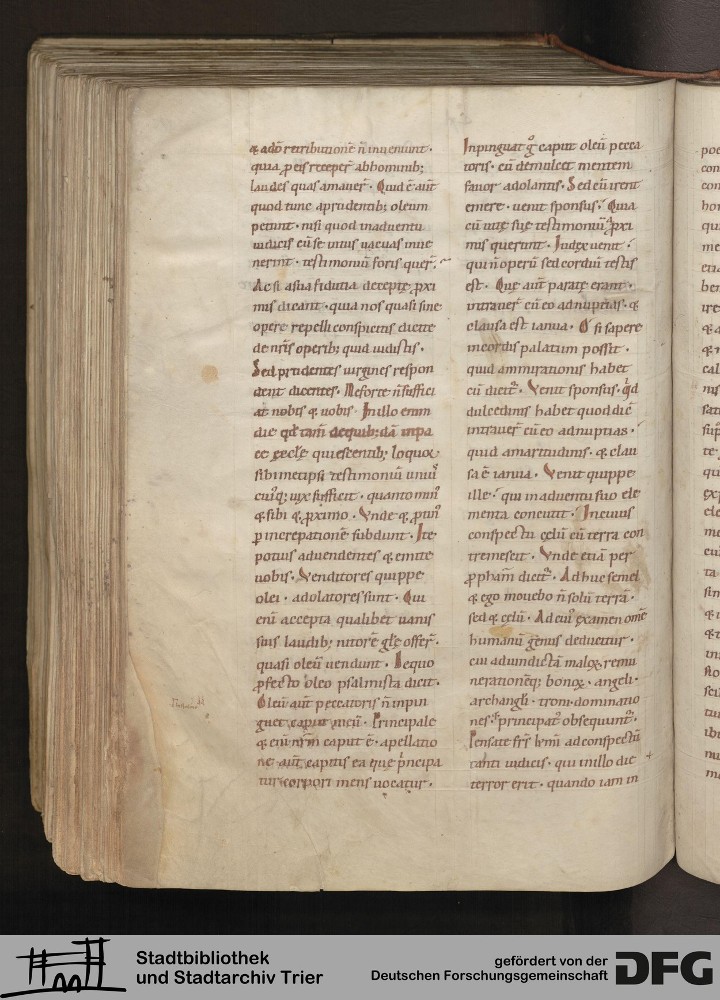 & adō retributionē n̄ inveniunt·
quia p eis receper̄ abhominib;
laudes quas amaver̄· Quid ē aūt
quod tunc a prudentib; oleum
petunt· nisi quod in adventu
iudicis cū se intus vacuas inve
nerint· testimoniū foris quer̄·
Ac si a sua fidutia deceptę ꝓxi
mis dicant· quia nos quasi sine
opere repelli conspicitis dicite
de nr̄is operib; quid vidistis·
Sed prudentes virgines respon
dent dicentes· Ne forte n̄ suffici
at nobis & vobis· In illo enim
die
ce ęcclę quiescentib; loquor
sibimetipsi testimoniū uniu̓
cuiq; vix sufficit· quanto min̓
& sibi & ꝓximo· Unde & ꝓtin̓
p increpationē subdunt· Ite
potius ad vendentes & emite
vobis· Venditores quippe
olei· adolatores sunt· Qui
enī accepta qualibet vanis
suis laudib; nitorē glę offer̄·
quasi oleū vendunt· De quo
ꝓfecto oleo psalmista dicit·
Oleū aūt peccatoris n̄ inpin
guet caput meū· Principale
& enī nrm̄ caput ē· apellatio
ne aūt capitis ea quę p̓ncipa
tur corpori mens vocatur·
Inpinguat g̊ caput oleū pecca
toris· cū demulcet mentem
favor adolantis· Sed eū irent
emere· venit sponsus· Quia
cū vitę suę testimoniū a ꝓxi
mis querunt· Iudex venit·
qui n̄ operū sed cordiū testis
est· Quę aūt paratę erant·
intraver̄ cū eo ad nuptias· &
clausa est ianua· O si sapere
in cordis palatum possit·
quid ammirationis habet
cū dicit̄· Venit sponsus· q̓d
dulcedinis habet quod dic̄
intraver̄ cū eo ad nuptias·
quid amaritudinis· & clau
sa ē ianua· Venit quippe
ille· qui in adventu suo ele
menta concutit· In cuius
conspectu cęlū & terra con
tremescit· Unde etiā per
ꝓpham̄ dicit̄· Adhuc semel
& ego movebo n̄ solū terrā·
sed & cęlū· Ad cui̓ examen omē
humanū genus deducitur·
cui ad vindictā maloꝝ remu
nerationēq; bonoꝝ· angeli·
archangli· troni· dominatio
nes· principat̓ obsequunt̄·
Pensate frs̄ kmi ad conspectū
tanti iudicis· qui in illo die
terror erit· quando iam in
Stadtbibliothek
und Stadtarchiv Trier
gefördert von der
Deutschen Forschungsgemeinschaft
DFG